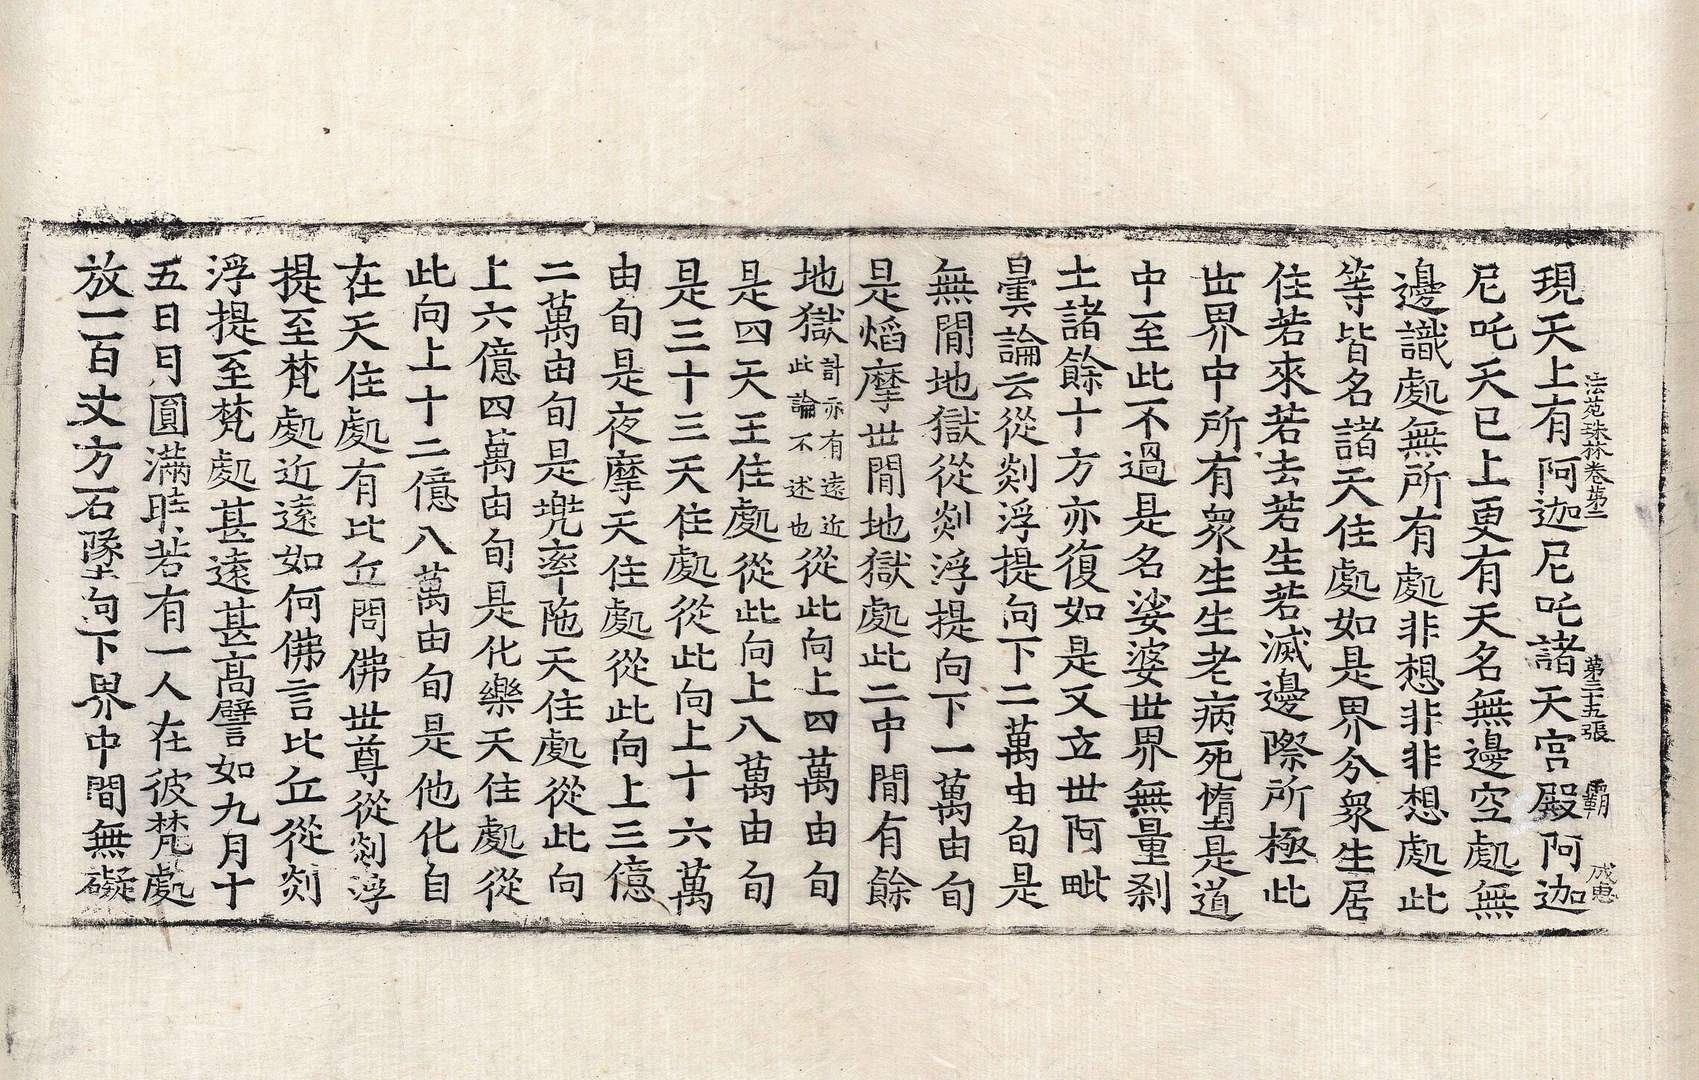 法苑珠林卷第二　第三十五張　霸　成惠
現天上有阿迦尼吒諸天宮殿阿迦
尼吒天已上更有天名無邊空處無
邊識處無所有處非想非非想處此
等皆名諸天住處如是界分衆生居
住若來若去若生若滅邊際所極此
世界中所有衆生生老病死墮是道
中至此不過是名娑婆世界無量剎
土諸餘十方亦復如是又立世阿毗
曇論云從剡浮提向下二萬由旬是
無閒地獄從剡浮提向下一萬由旬
是熖摩世閒地獄處此二中閒有餘
地獄計亦有遠近此論不述也從此向上四萬由旬
是四天王住處從此向上八萬由旬
是三十三天住處從此向上十六萬
由旬是夜摩天住處從此向上三億
二萬由旬是兜率陁天住處從此向
上六億四萬由旬是化樂天住處從
此向上十二億八萬由旬是他化自
在天住處有比丘問佛世尊從剡浮
提至梵處近遠如何佛言比丘從剡
浮提至梵處甚遠甚高譬如九月十
五日月圓滿時若有一人在彼梵處
放一百丈方石墜向下界中間無礙